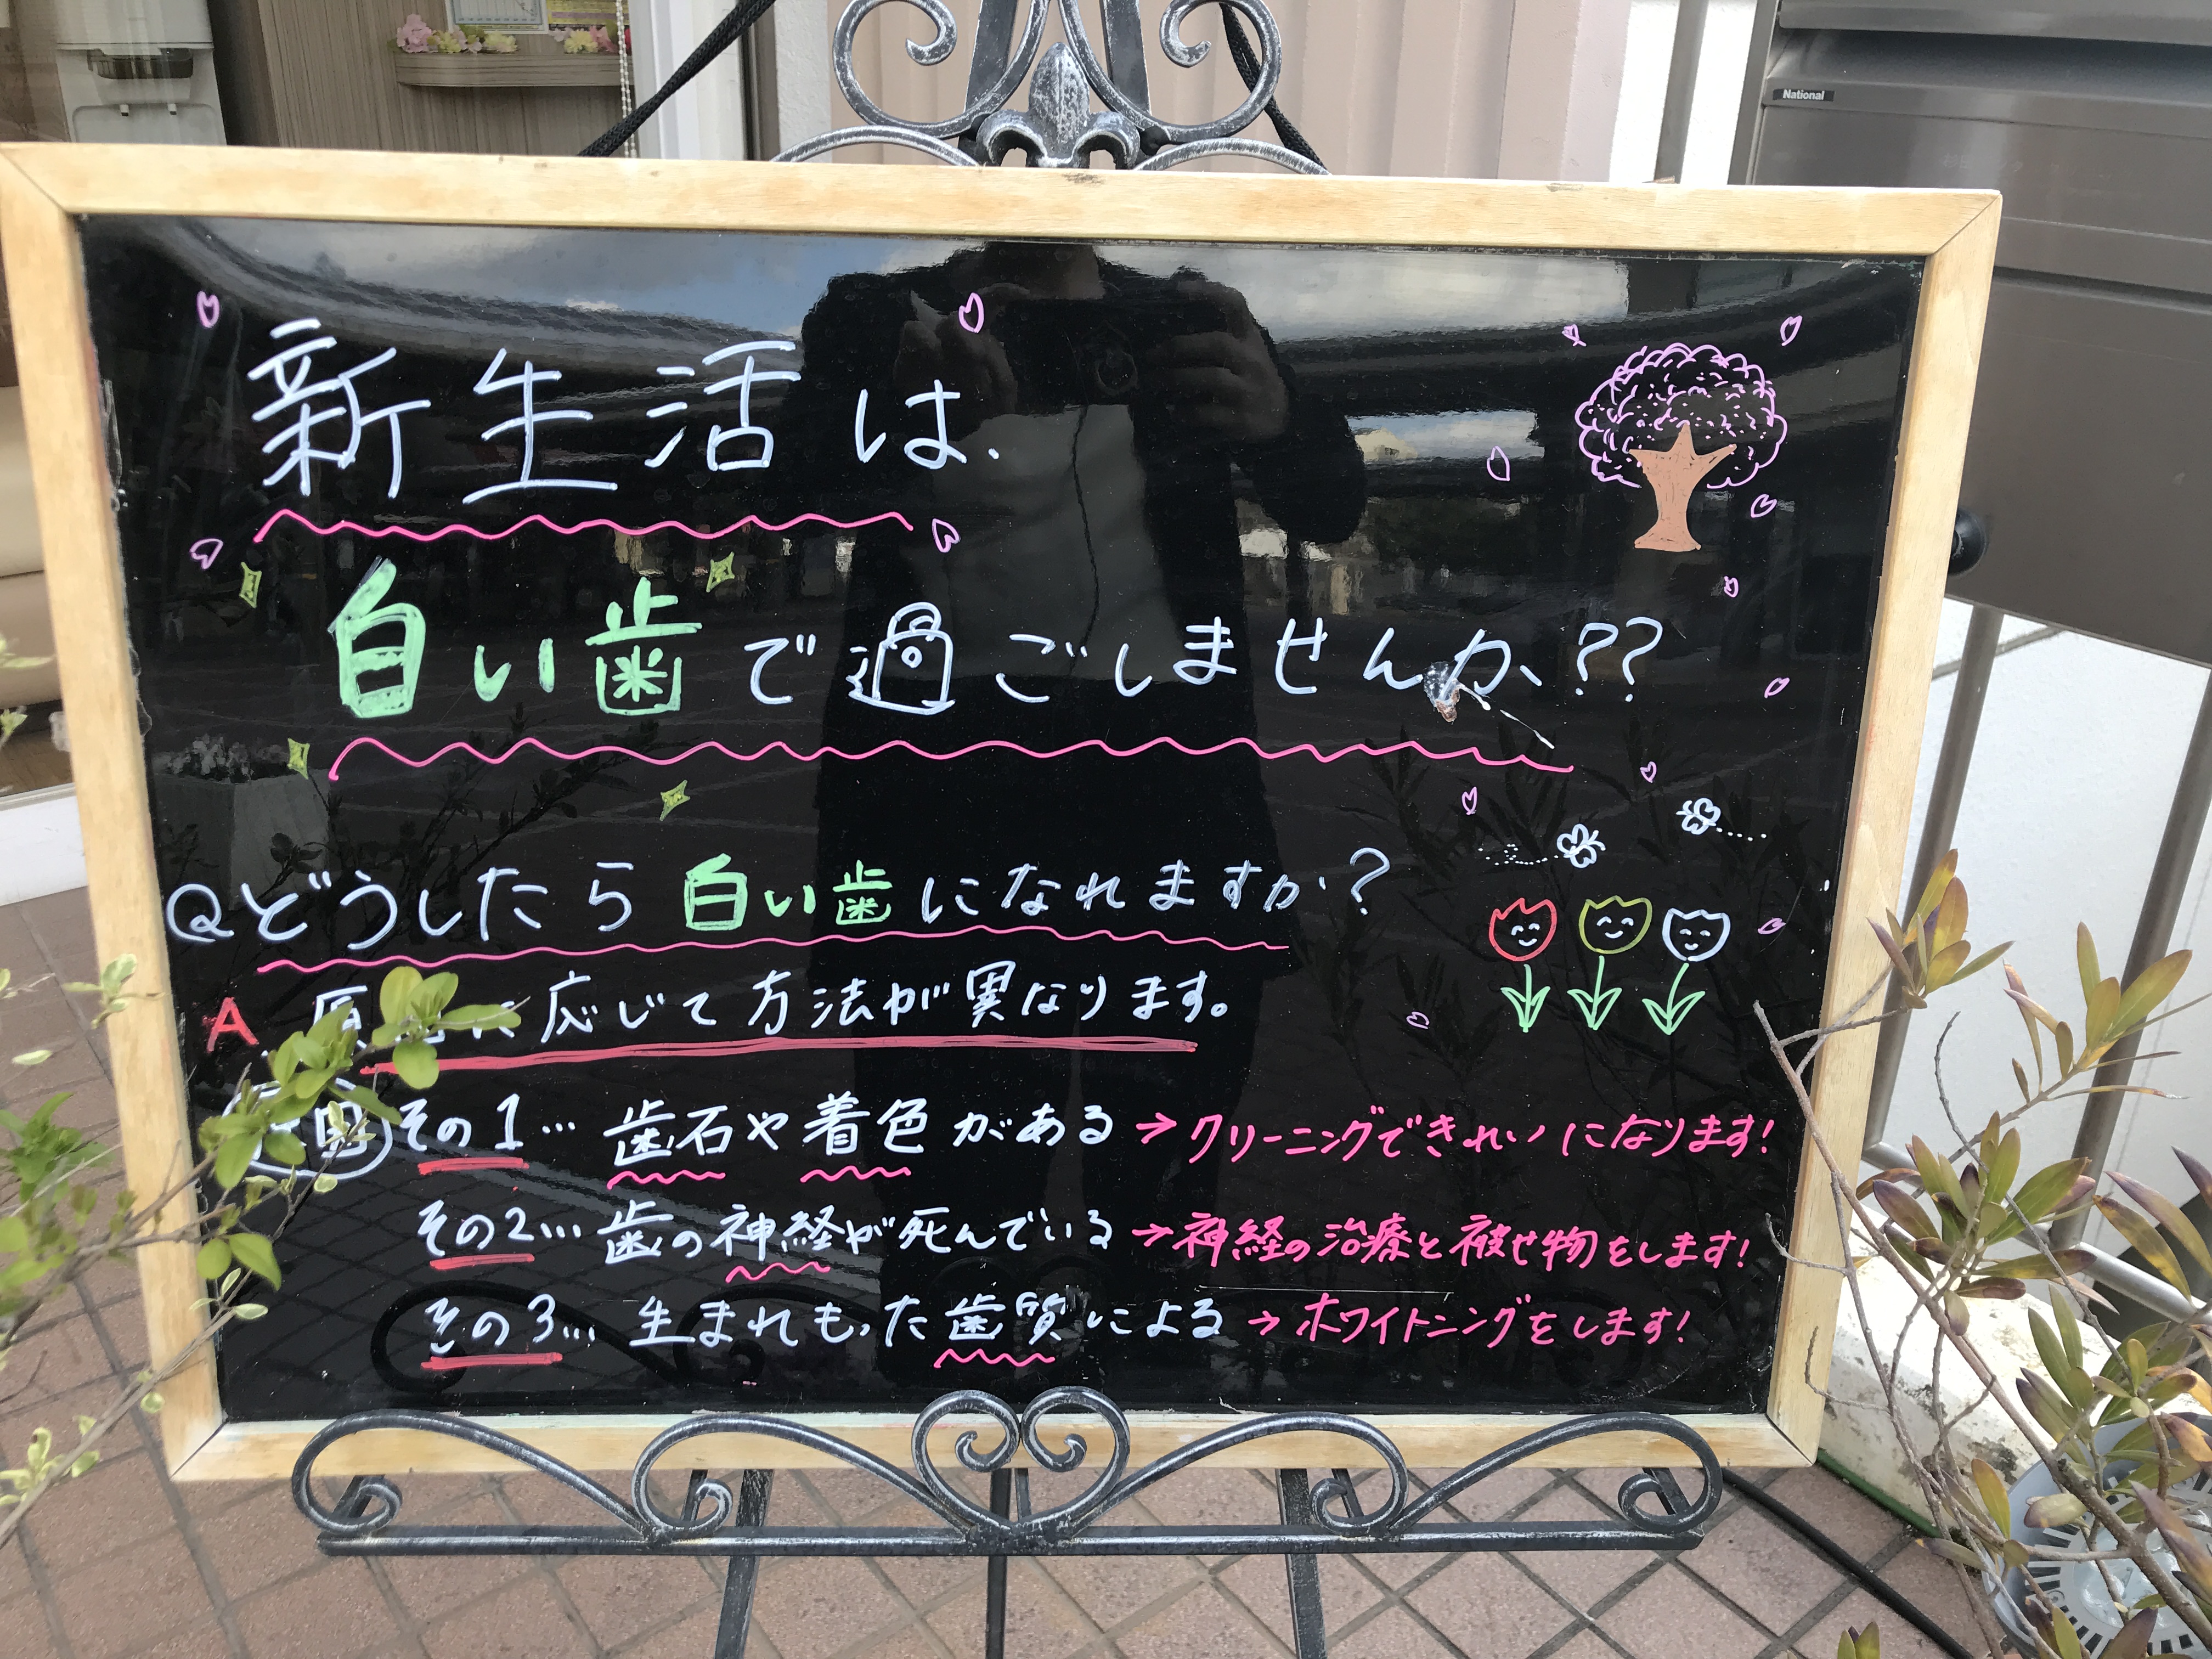 National
新生活は、
白い歯で過ごしませんか??
Qどうしたら白い歯になれますか?
A 原 に応じて方法が異なります。
因 その1… 歯石や着色がある→クリーニングできれいになります!
その2… 歯の神経が死んでいる→神経の治療と被せ物をします!
その3… 生まれもった歯質による→ホワイトニングをします!